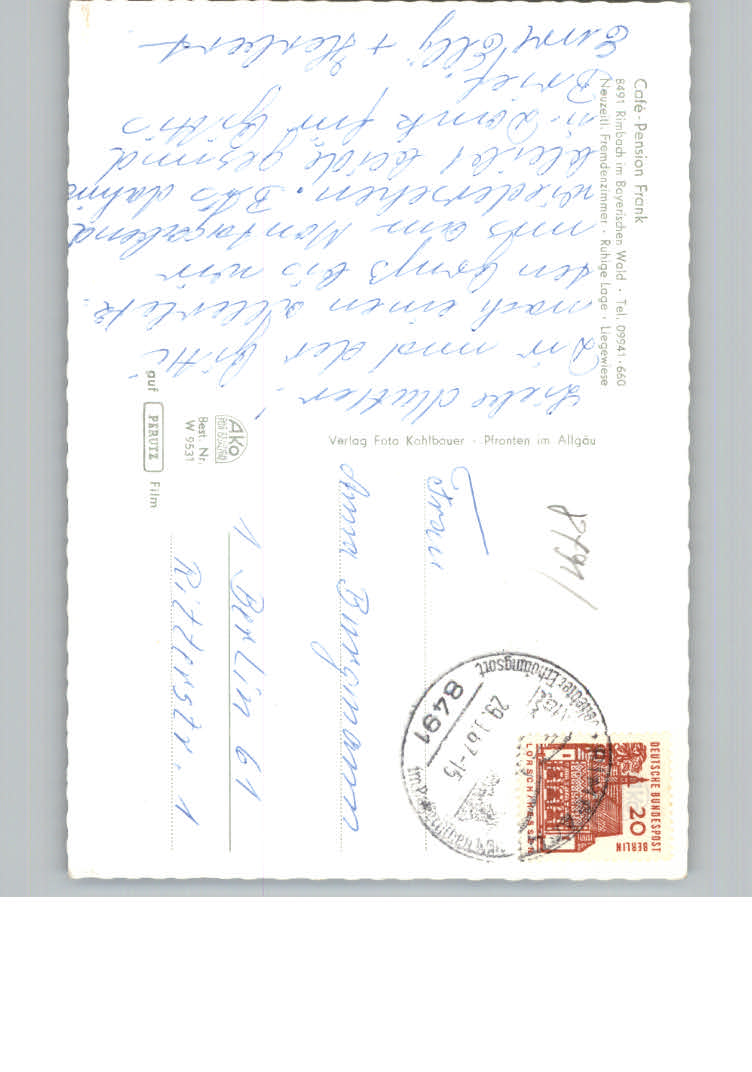 Café - Pension Frank
8491 Rimbach im Bayerischen Wald · Tel. 09941-660
Neuzeitl. Fremdenzimmer · Ruhige Lage · Liegewiese
Liebe Mutter!
Dir und der Gitti
noch einen allerletz-
ten Gruß bis wir
uns am Montagabend
wiedersehen. Bis dahin
bleibt beide gesund
u. Dank für Gittis
Brief.
Eure Elly + Herbert
Verlag Foto Kohlbauer · Pfronten im Allgäu
Ako
Best. Nr.
W 9531
auf PERUTZ Film
8491
Frau
Anna Bergmann
1 Berlin 61
Ritterstr. 1
8491
29. 67-15
beliebter Erholungsort
DEUTSCHE BUNDESPOST
BERLIN
20
LORSCH/HESSEN